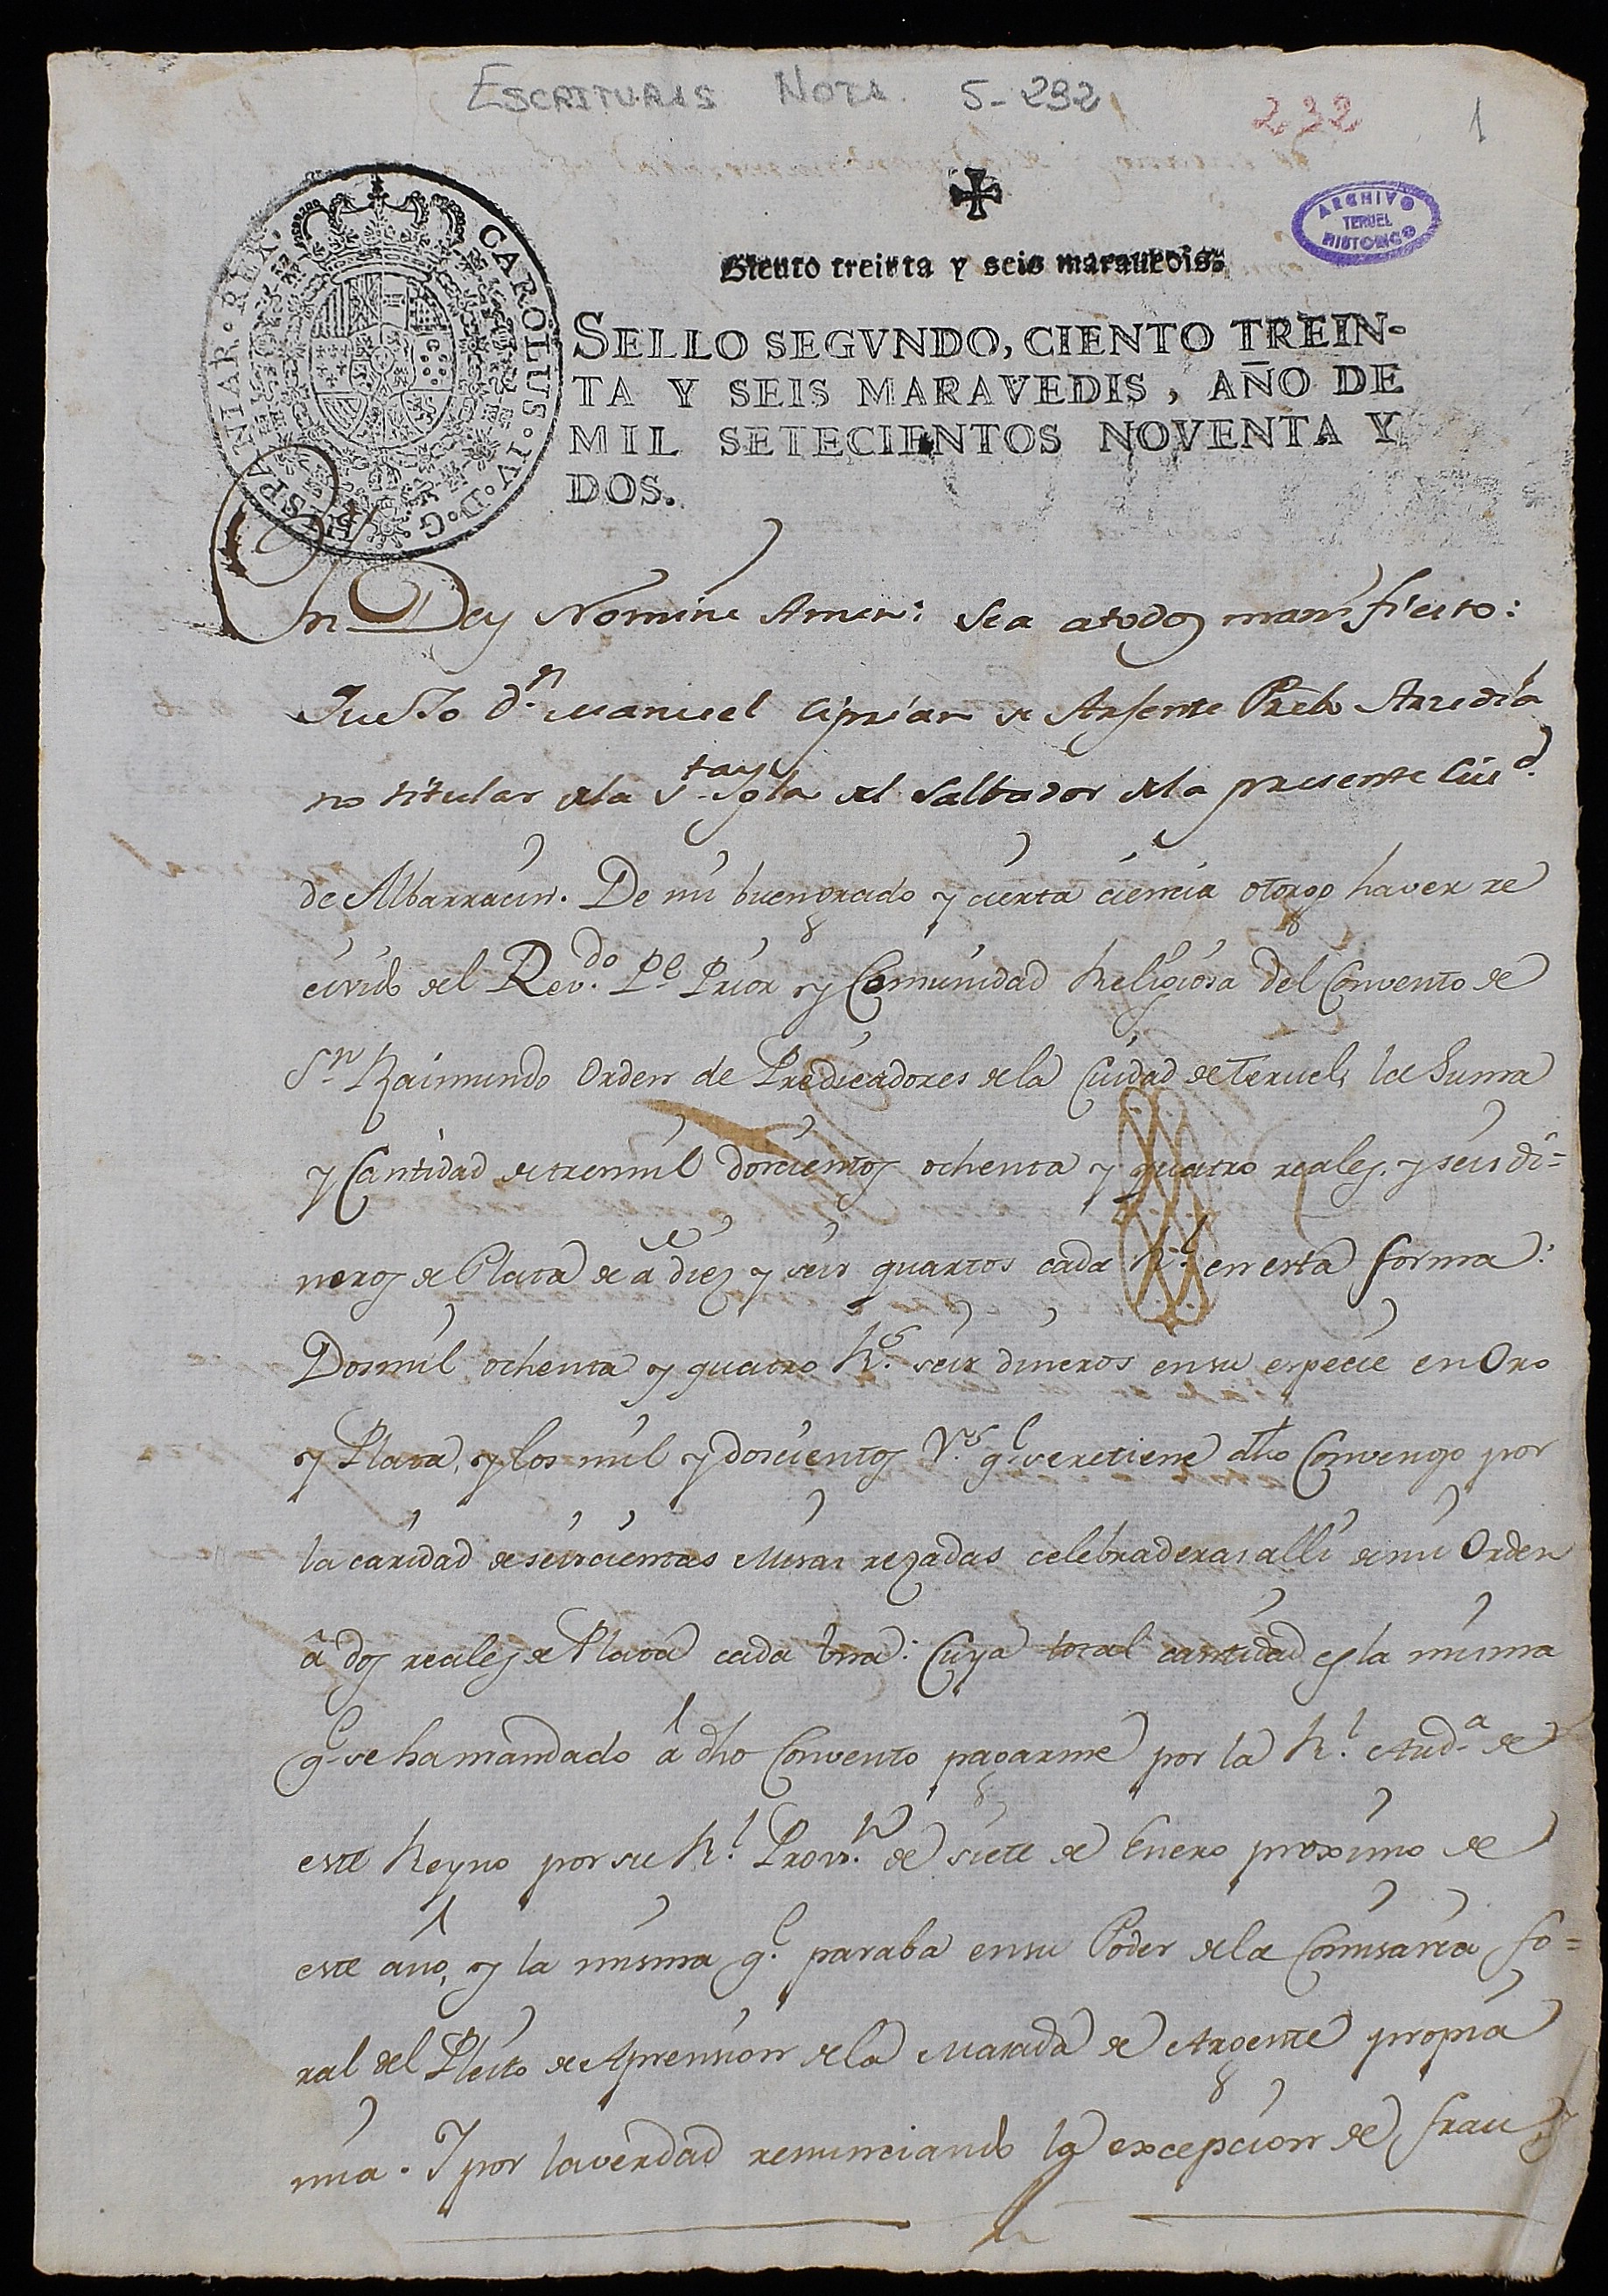 ESCRITURAS NOTA. 5-292
232
1
ARCHIVO
TERUEL
HISTORICO
CAROLUS·IV·D·G·HISPANIAR·REX·
Siento treinta y seis marauedis.
SELLO SEGVNDO, CIENTO TREIN-
TA Y SEIS MARAVEDIS, AÑO DE
MIL SETECIENTOS NOVENTA Y
DOS.
In Dey Nomine Amen: Sea atodos manifiesto:
Que Yo Dn. Manuel Ciprian de Arjente Prebo Arcedia
no titular dela Sta. Ygla del Salbador dela presente Ciud.
de Albarracin. De mi buen grado y cierta ciencia otorgo haver re
civido del Revdo. Pe. Prior y Comunidad Religiosa del Convento de
Sn. Raimundo Orden de Predicadores dela Ciudad de Teruel, la Suma
y Cantidad de tresmil doscientos ochenta y quatro reales, y seis di=
neros de Plata de â diez y seis quartos cada Rl. en esta forma:
Dosmil ochenta y quatro Rs. seis dineros en su especie en Oro
y Plata, y los mil y doscientos Rs. qe. se retiene dho Convengo por
la caridad de seiscientas Misas rezadas celebraderas alli de mi Orden
â dos reales de Plata cada una: Cuya total cantidad es la misma
qe. se ha mandado â dho Convento pagarme por la Rl. Auda. de
este Reyno por su Rl. Provn. de siete de Enero proximo de
este año, y la misma qe. paraba en su Poder dela Comisaria fo=
ral del Pleito de Aprension dela Masada de Argente propia
mia. Y por la verdad renunciando la excepcion de frau